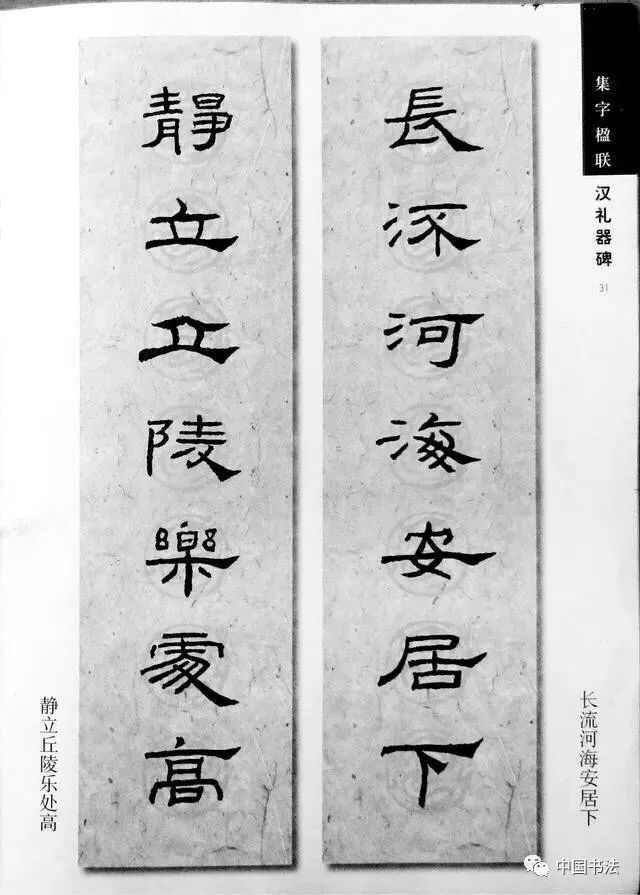 集字楹联
汉礼器碑
31
長流河海安居下
长流河海安居下
靜立丘陵樂處高
静立丘陵乐处高
中国书法